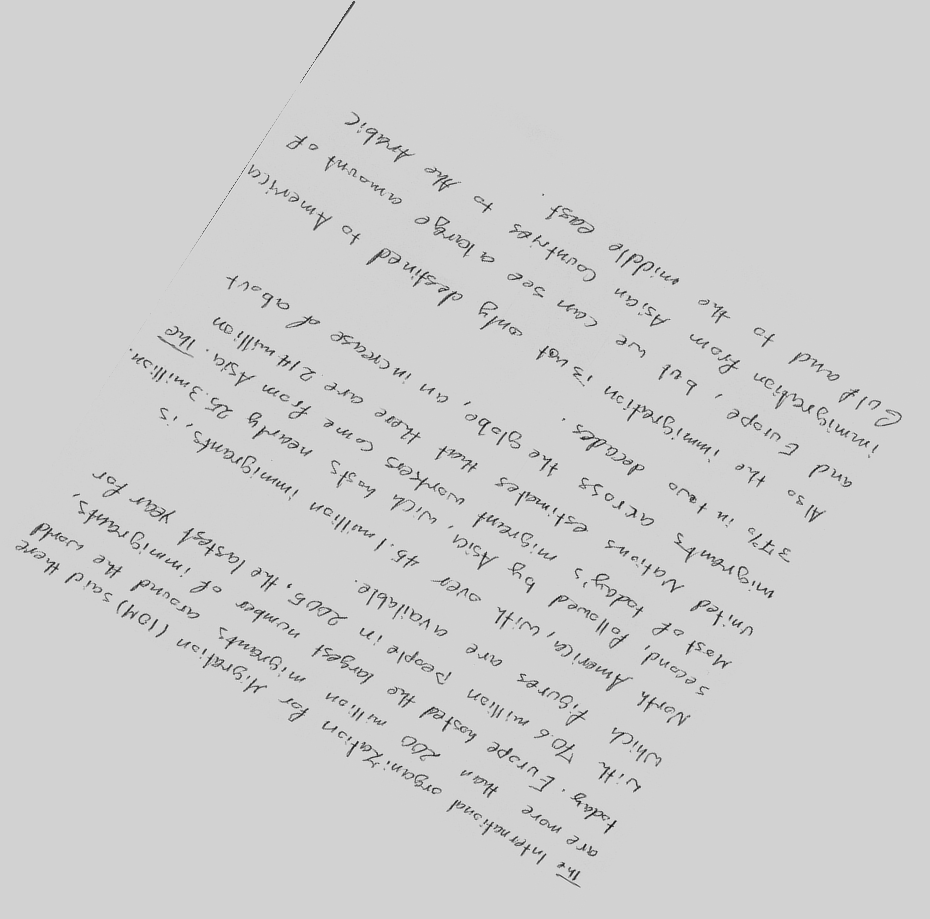 The International organization for Migration (IOM) said there
are more than 200 million migrants around the world
today. Europe hosted the largest number of immigrants,
with 70.6 million People in 2005, the lastest year for
which figures are available.
North America, with over 45.1 million immigrants, is
second, followed by Asia, which hosts nearly 25.3 million.
Most of today's migrent workers come from Asia. The
united Nations estimates that there are 214 million
migrants across the globe, an increase of about
37% in two decades.
Also the immigretion is not only destined to America
and Europe, but we can see a large amount of
immigreation from Asian Countries to the Arabic
Gulf and to the middle East.